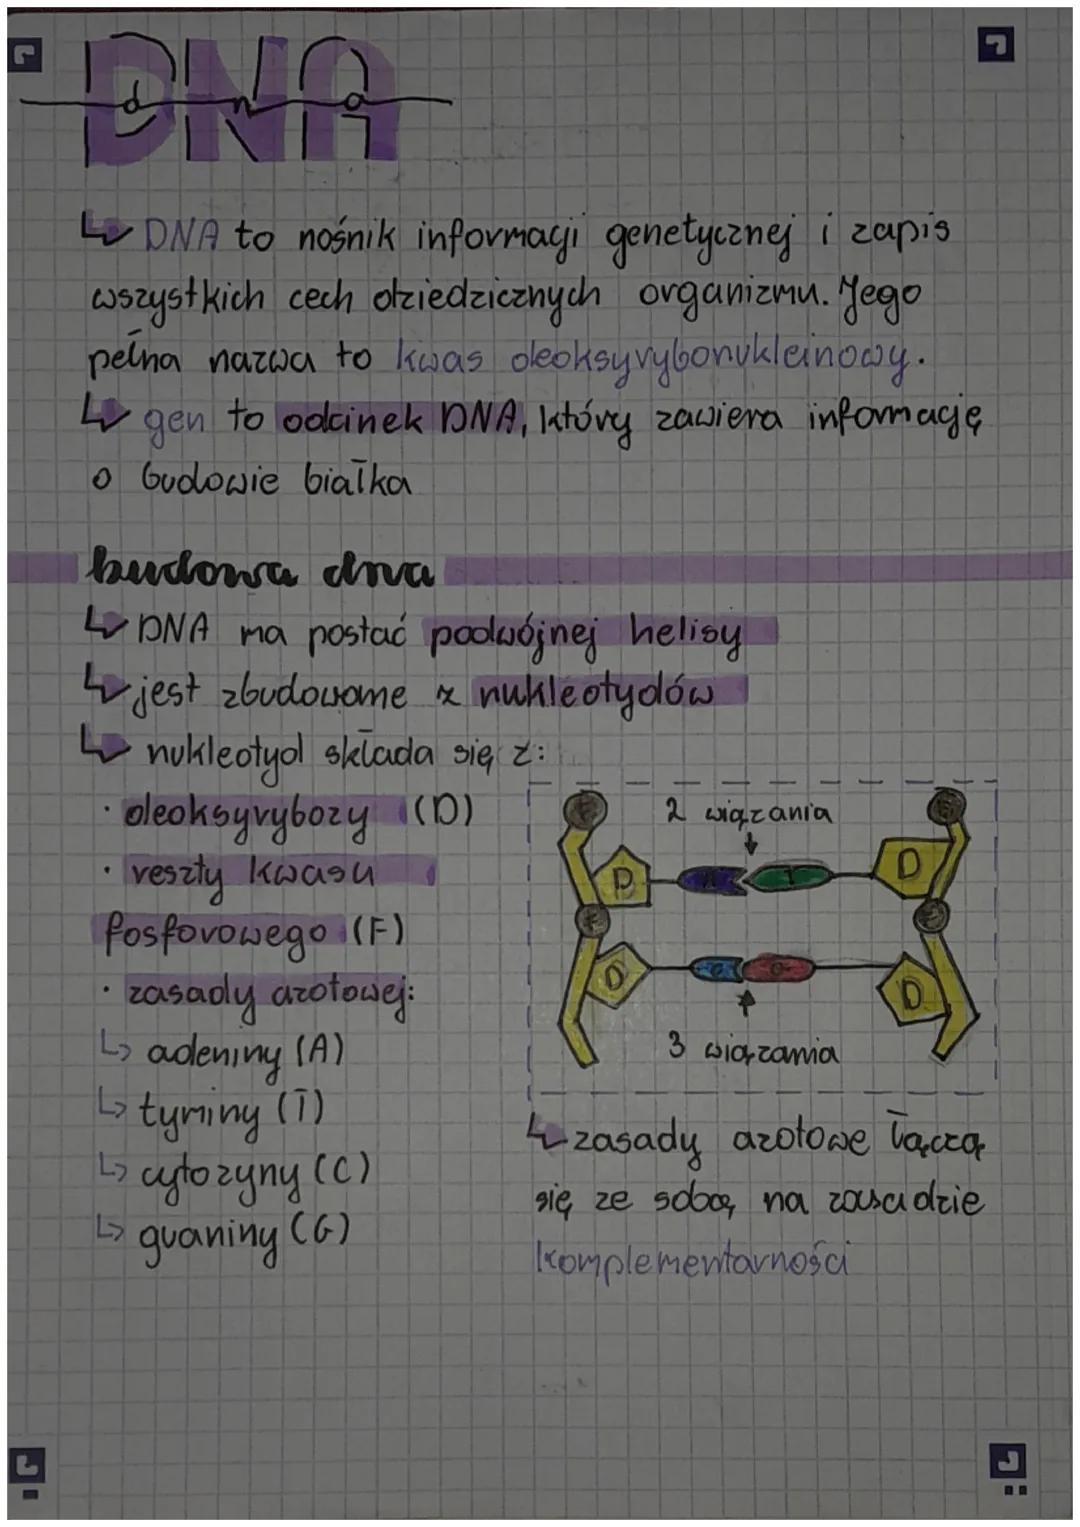 DNA
dna
↳ DNA to nośnik informacji genetycznej i zapis
wszystkich cech dziedzicznych organizmu. Jego
pełna nazwa to kwas deoksyrybonukleinowy.
↳ gen to odcinek DNA, który zawiera informację
o budowie białka
budowa dna
↳ DNA ma postać podwójnej helisy
↳ jest zbudowane z nukleotydów
↳ nukleotyd składa się z:
· deoksyrybozy (D)
· reszty kwasu
fosforowego (F)
· zasady azotowej:
↳ adeniny (A)
↳ tyminy (T)
↳ cytozyny (C)
↳ guaniny (G)
F 2 wiązania F
D A T D
F F
D C G D
3 wiązania
↳ zasady azotowe łączą
się ze sobą na zasadzie
komplementarności